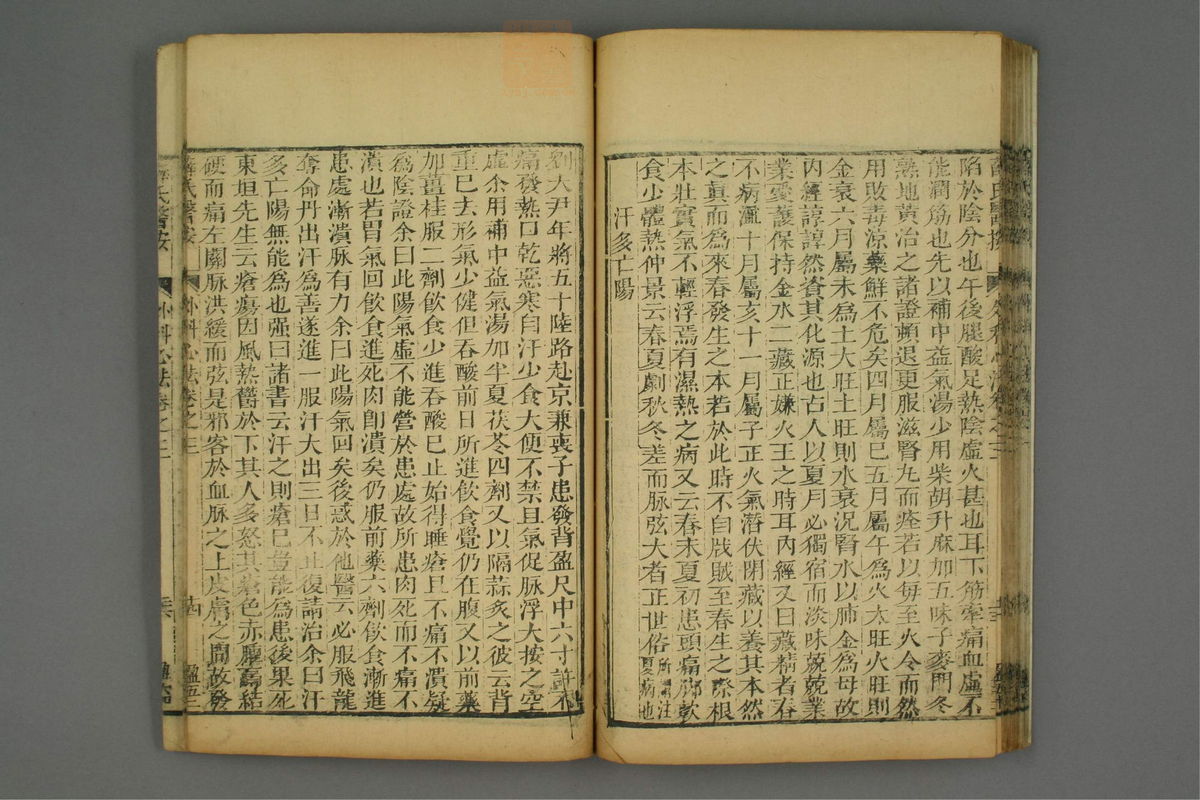 陷於陰分也午後腿酸足熱陰虛火甚也耳下筋牽痛血虛不
能潤筋也先以補中益氣湯少用柴胡升麻加五味子麥門冬
熟地黃治之諸證頓退更服滋腎丸而痊若以每至火令而然
用敗毒涼藥鮮不危矣四月屬巳五月屬午為火太旺火旺則
金衰六月屬未為土大旺土旺則水衰況腎水以肺金為母故
內經諄諄然資其化源也古人以夏月必獨宿而淡味兢兢業
業愛護保持金水二藏正嫌火王之時耳內經又曰藏精者春
不病溫十月屬亥十一月屬子正火氣潛伏閉藏以養其本然
之真而為來春發生之本若於此時不自戕賊至春生之際根
本壯實氣不輕浮焉有濕熱之病又云春末夏初患頭痛腳軟
食少體熱仲景云春夏劇秋冬差而脉弦大者正世俗所謂注夏病也
汗多亡陽
劉大尹年將五十陸路赴京兼喪子患發背盈尺中六寸許不
痛發熱口乾惡寒自汗少食大便不禁且氣促脉浮大按之空
虛余用補中益氣湯加半夏茯苓四劑又以隔蒜灸之彼云背
重已去形氣少健但吞酸前日所進飲食覺仍在腹又以前藥
加薑桂服二劑飲食少進吞酸已止始得睡瘡且不痛不潰疑
為陰證余曰此陽氣虛不能營於患處故所患肉死而不痛不
潰也若胃氣回飲食進死肉即潰矣仍服前藥六劑飲食漸進
患處漸潰脉有力余曰此陽氣回矣後惑於他醫云必服飛龍
奪命丹出汗為善遂進一服汗大出三日不止復請治余曰汗
多亡陽無能為也强曰諸書云汗之則瘡已豈能為患後果死
東垣先生云瘡瘍因風熱鬱於下其人多怒其瘡色赤腫高結
硬而痛左關脉洪緩而弦是邪客於血脉之上皮膚之間故發
薛氏醫按 外科心法卷之三